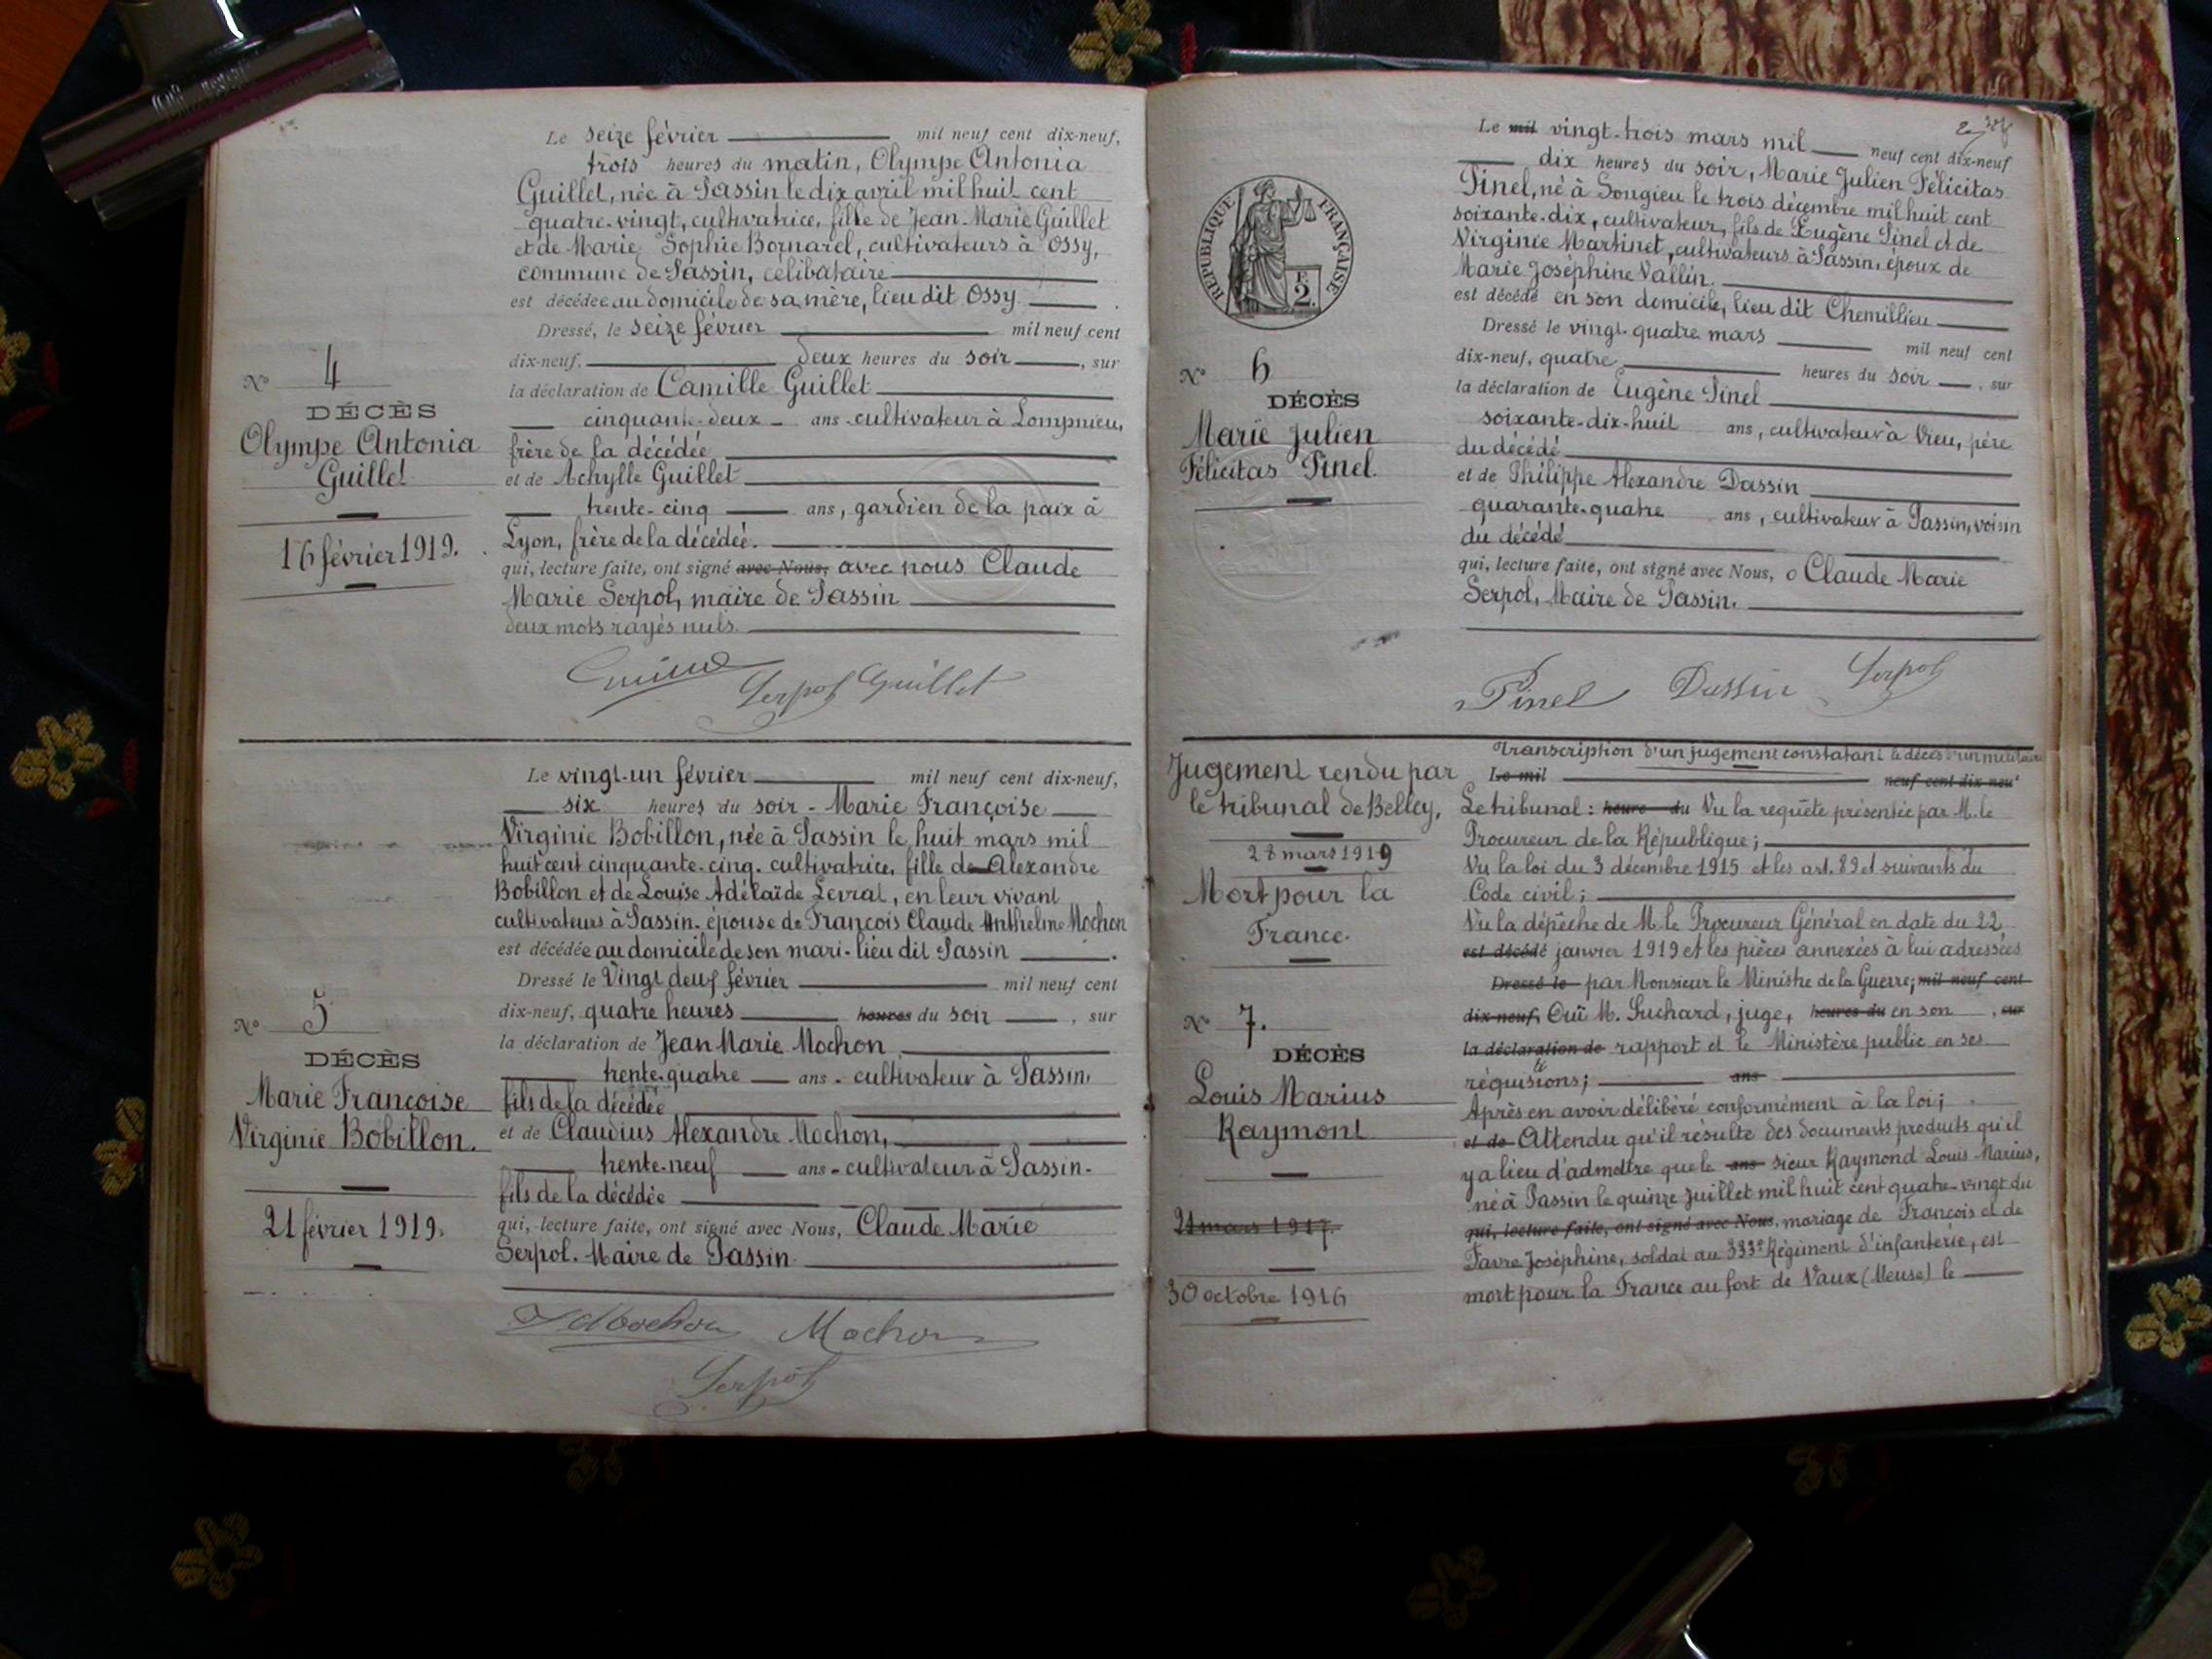 Le seize février mil neuf cent dix-neuf,
trois heures du matin, Olympe Antonia
Guillet, née à Passin le dix avril mil huit cent
quatre-vingt, cultivatrice, fille de Jean-Marie Guillet
et de Marie Sophie Bornarel, cultivateurs à Ossy,
commune de Passin, célibataire
est décédée au domicile de sa mère, lieu dit Ossy.
Dressé, le seize février mil neuf cent
dix-neuf, deux heures du soir, sur
la déclaration de Camille Guillet
cinquante-deux ans - cultivateur à Lompnieu,
frère de la décédée
et de Achylle Guillet
trente-cinq ans, gardien de la paix à
Lyon, frère de la décédée.
qui, lecture faite, ont signé avec Nous, avec nous Claude
Marie Serpol, maire de Passin
deux mots rayés nuls.
Serpol Guillet
N° 4
DÉCÈS
Olympe Antonia
Guillet
16 février 1919.
Le vingt-un février mil neuf cent dix-neuf,
six heures du soir - Marie Françoise
Virginie Bobillon, née à Passin le huit mars mil
huit cent cinquante-cinq. cultivatrice, fille de Alexandre
Bobillon et de Louise Adélaïde Levrat, en leur vivant
cultivateurs à Passin - épouse de François Claude Anthelme Mochon
est décédée au domicile de son mari - lieu dit Passin.
Dressé le Vingt deux février mil neuf cent
dix-neuf, quatre heures heures du soir, sur
la déclaration de Jean Marie Mochon
trente-quatre ans - cultivateur à Passin,
fils de la décédée
et de Claudius Alexandre Mochon,
trente-neuf ans - cultivateur à Passin -
fils de la décédée
qui, lecture faite, ont signé avec Nous, Claude Marie
Serpol. Maire de Passin.
Mochon Mochon
Serpol
N° 5
DÉCÈS
Marie Françoise
Virginie Bobillon.
21 février 1919.
Le mil vingt-trois mars mil neuf cent dix-neuf
dix heures du soir, Marie Julien Félicitas
Pinel, né à Songieu le trois décembre mil huit cent
soixante-dix, cultivateur, fils de Eugène Pinel et de
Virginie Martinet, cultivateurs à Passin, époux de
Marie Joséphine Vallin.
est décédé en son domicile, lieu dit Chemillieu
Dressé le vingt-quatre mars mil neuf cent
dix-neuf, quatre heures du soir, sur
la déclaration de Eugène Pinel
soixante-dix-huit ans, cultivateur à Vieu, père
du décédé
et de Philippe Alexandre Dassin
quarante-quatre ans, cultivateur à Passin, voisin
du décédé
qui, lecture faite, ont signé avec Nous, Claude Marie
Serpol, Maire de Passin.
Pinel Dassin Serpol
RÉPUBLIQUE FRANÇAISE
2
N° 6
DÉCÈS
Marie Julien
Félicitas Pinel.
Transcription d'un jugement constatant le décès d'un militaire
Le mil neuf cent dix neuf
Le tribunal : heure du Vu la requête présentée par M. le
Procureur de la République ;
Vu la loi du 3 décembre 1915 et les art. 89 et suivants du
Code civil ;
Vu la dépêche de M. le Procureur Général en date du 22
est décédé janvier 1919 et les pièces annexées à lui adressées
Dressé le par Monsieur le Ministre de la Guerre ; mil neuf cent
dix-neuf, Ouï M. Suchard, juge, heures du en son, sur
la déclaration de rapport et le Ministère public en ses
réquisitions ; ans
Après en avoir délibéré conformément à la loi ;
et de Attendu qu'il résulte des documents produits qu'il
y a lieu d'admettre que le ans sieur Raymond Louis Marius,
né à Passin le quinze Juillet mil huit cent quatre-vingt du
qui, lecture faite, ont signé avec Nous, mariage de François et de
Favre Joséphine, soldat au 333e Régiment d'infanterie, est
mort pour la France au fort de Vaux (Meuse) le
Jugement rendu par
le tribunal de Belley,
28 mars 1919
Mort pour la
France.
N° 7.
DÉCÈS
Louis Marius
Raymont
21 mars 1917.
30 octobre 1916